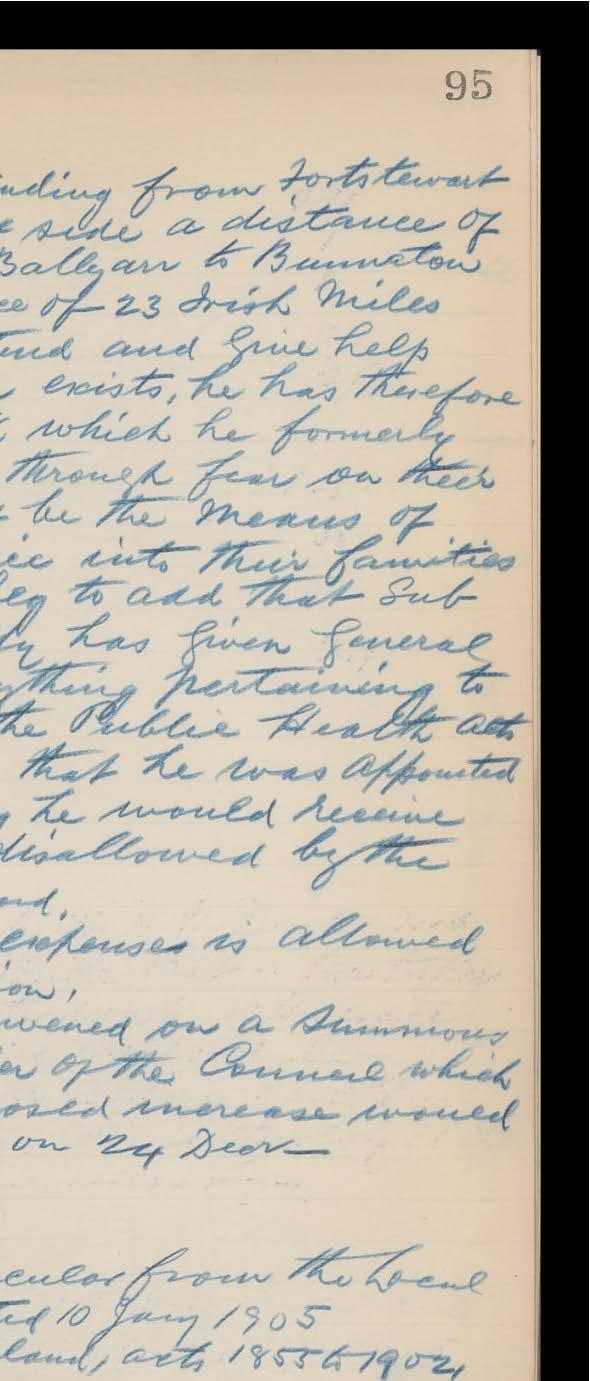 95
nding from Fortstewart
e side a distance of
Ballyarr to Bunnaton
ce of 23 Irish Miles
tend and Give help
exists, he has therefore
which he formerly
through fear on their
be the Means of
ice into their families
beg to add that Sub
ly has Given General
ything pertaining to
the Public Health Acts
that he was Appointed
g he would receive
disallowed by the
ard.
expenses is allowed
ion.
nvened on a Summons
er of the Council which
osed increase would
on 24 Decr
cular from the Local
ted 10 Jany 1905
land, acts 1855 to 1902,